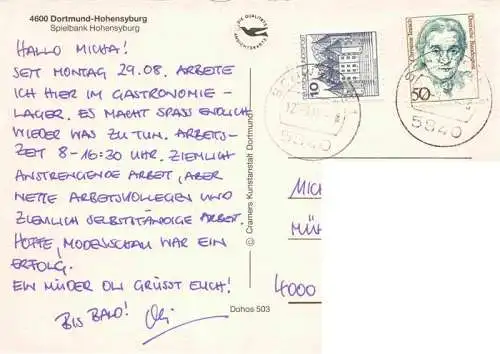 4600 Dortmund-Hohensyburg
Spielbank Hohensyburg
HALLO MICHA!
SEIT MONTAG 29.08. ARBEITE
ICH HIER IM GASTRONOMIE-
LAGER. ES MACHT SPASS ENDLICH
WIEDER WAS ZU TUN. ARBEITS-
ZEIT 8-16:30 UHR. ZIEMLICH
ANSTRENGENDE ARBEIT, ABER
NETTE ARBEITSKOLLEGEN UND
ZIEMLICH SELBSTSTÄNDIGE ARBEIT.
HOFFE, MODENSCHAU WAR EIN
ERFOLG.
EIN MÜDER OLI GRÜSST EUCH!
BIS BALD! Oli
© Cramers Kunstanstalt Dortmund
Dohos 503
DIE QUALITÄTS
ANSICHTSKARTE
10
50
Deutsche Bundespost
5840
5840
MICH
MÜH
4000